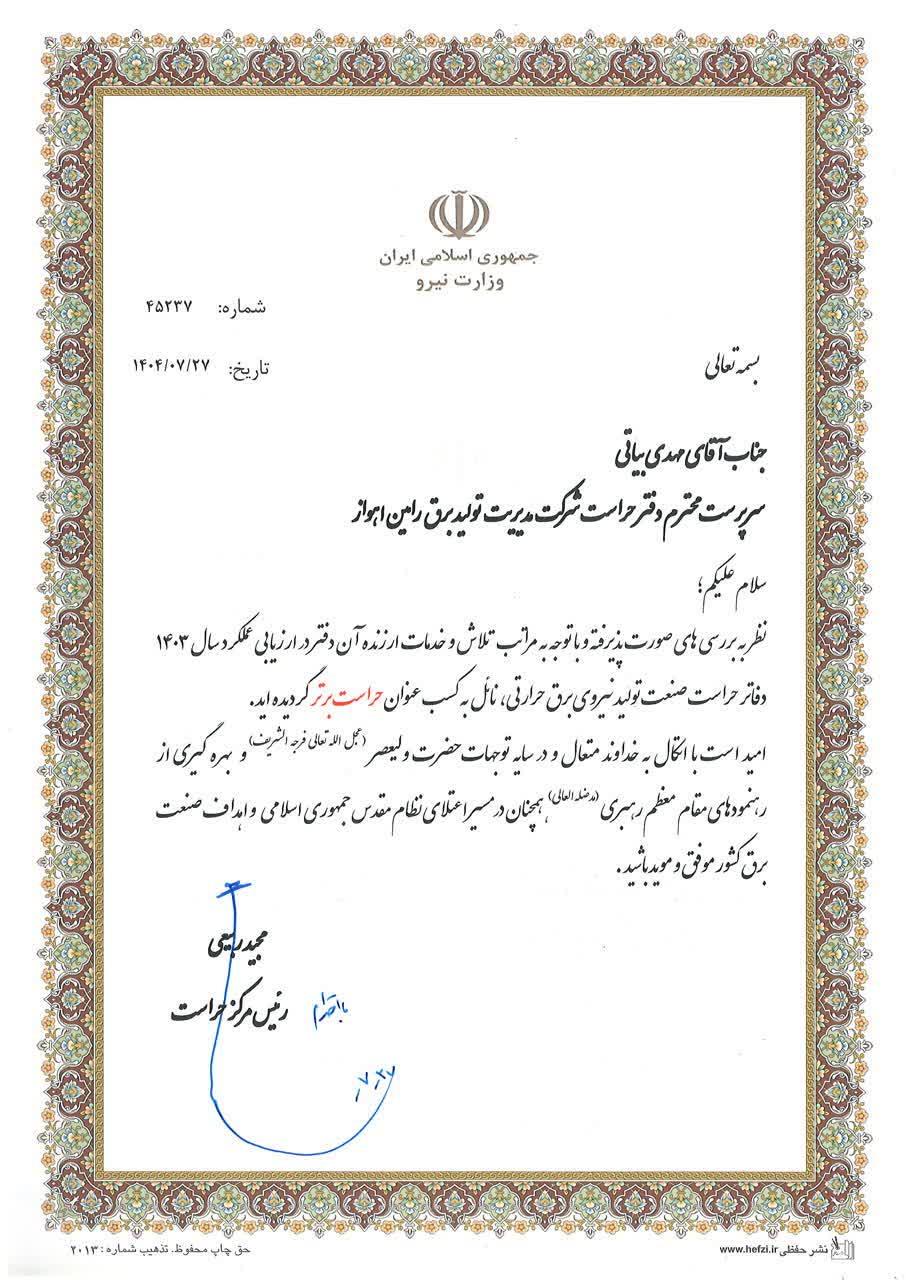 جمهوری اسلامی ایران
وزارت نیرو
شماره: ۴۵۲۳۷
تاریخ: ۱۴۰۴/۰۷/۲۷
بسمه تعالی
جناب آقای مهدی بیاتی
سرپرست محترم دفتر حراست شرکت مدیریت تولید برق رامین اهواز
سلام علیکم؛
نظر به بررسی های صورت پذیرفته و با توجه به مراتب تلاش و خدمات ارزنده آن دفتر در ارزیابی عملکرد سال ۱۴۰۳
دفاتر حراست صنعت تولید نیروی برق حرارتی، نائل به کسب عنوان حراست برتر گردیده اید.
امید است با اتکال به خداوند متعال و در سایه توجهات حضرت ولیعصر (عجل الله تعالی فرجه الشریف) و بهره گیری از
رهنمودهای مقام معظم رهبری (مدظله العالی) همچنان در مسیر اعتلای نظام مقدس جمهوری اسلامی و اهداف صنعت
برق کشور موفق و موید باشید.
مجید ربیعی
رئیس مرکز حراست
با احترام
۲۷-۷-
نشر حفظی www.hefzi.ir
حق چاپ محفوظ. تذهیب شماره: ۲۰۱۳